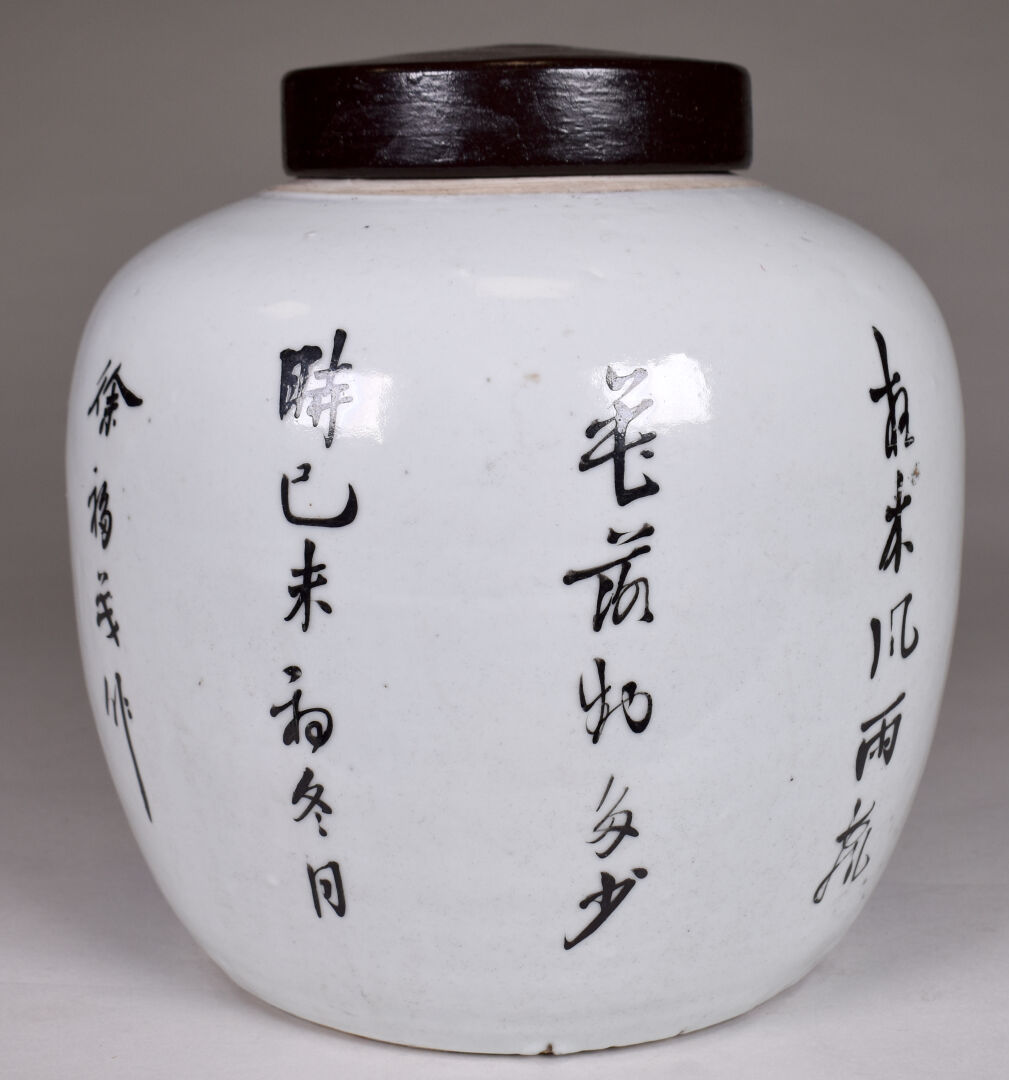 夜来风雨聲
花落知多少
時己未初冬月
徐福茂作